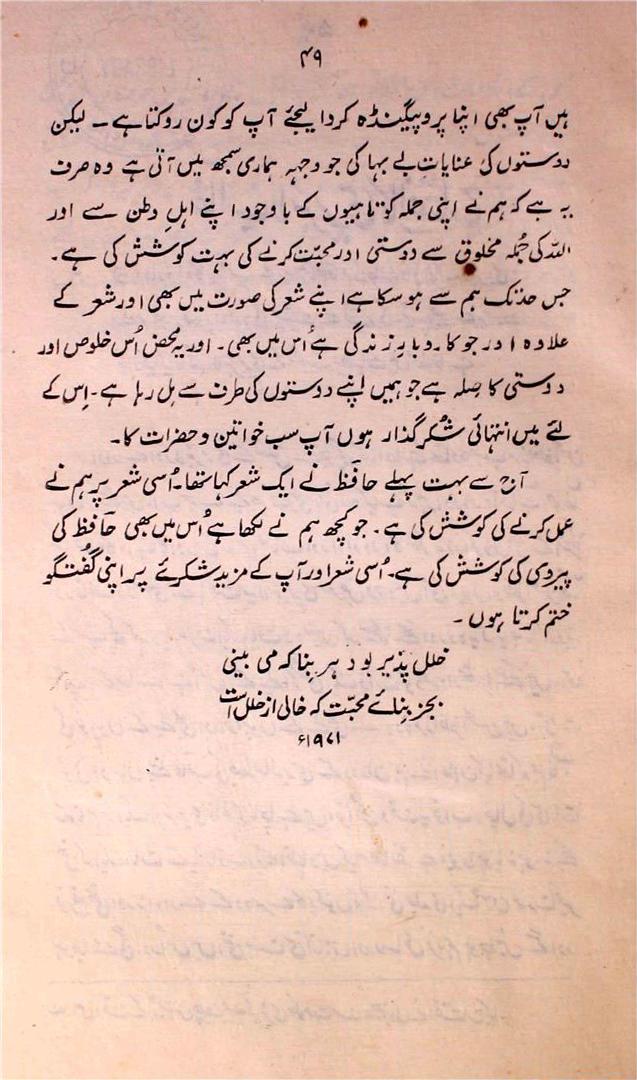 ۴۹
ہیں آپ بھی اپنا پروپیگینڈہ کردا لیجئے آپ کو کون روکتا ہے ۔ لیکن
دوستوں کی عنایاتِ بے بہا کی جو وجہہ ہماری سمجھ میں آتی ہے وہ صرف
یہ ہے کہ ہم نے اپنی جملہ کوتاہیوں کے باوجود اپنے اہلِ وطن سے اور
اللہ کی جُملہ مخلوق سے دوستی اور محبّت کرنے کی بہت کوشش کی ہے۔
جس حد تک ہم سے ہو سکا ہے اپنے شعر کی صورت میں بھی اور شعر کے
علاوہ اور جو کاروبارِ زندگی ہے اُس میں بھی۔ اور یہ محض اُس خلوص اور
دوستی کا صِلہ ہے جو ہمیں اپنے دوستوں کی طرف سے مِل رہا ہے۔ اِس کے
لئے میں انتہائی شکر گذار ہوں آپ سب خواتین و حضرات کا۔
آج سے بہت پہلے حافظ نے ایک شعر کہا تھا۔ اُسی شعر پر ہم نے
عمل کرنے کی کوشش کی ہے۔ جو کچھ ہم نے لکھا ہے اُس میں بھی حافظ کی
پیروی کی کوشش کی ہے۔ اُسی شعر اور آپ کے مزید شکرئے پر اپنی گفتگو
ختم کرتا ہوں۔
خلل پذیر بود ہر بِنا کہ می بینی
بجز بِنائے محبّت کہ خالی از خلل است
۱۹۸۱ء